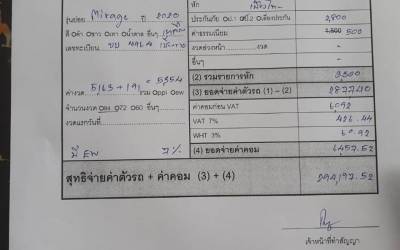 หัก
รุ่นย่อย Mirage ปี 2020 ประกันภัย ป.1 2,800
ค่าธรรมเนียม 1,500 500
เลขทะเบียน งวดล่วงหน้า งวด
อื่นๆ
(2) รวมรายการหัก 3,300
ค่างวด 5163 + 191 = 5354 รวม (3) ยอดจ่ายค่าตัวรถ (1) – (2)
จำนวนงวด O72 O60 อื่นๆ ค่าคอมก่อน VAT 6,092
งวดแรกวันที่ VAT 7% 426.44
WHT 3% 60.92
มี EW 7% (4) ยอดจ่ายค่าคอม 6457.52
สุทธิจ่ายค่าตัวรถ + ค่าคอม (3) + (4) 294,197.52
เจ้าหน้าที่ทำสัญญา